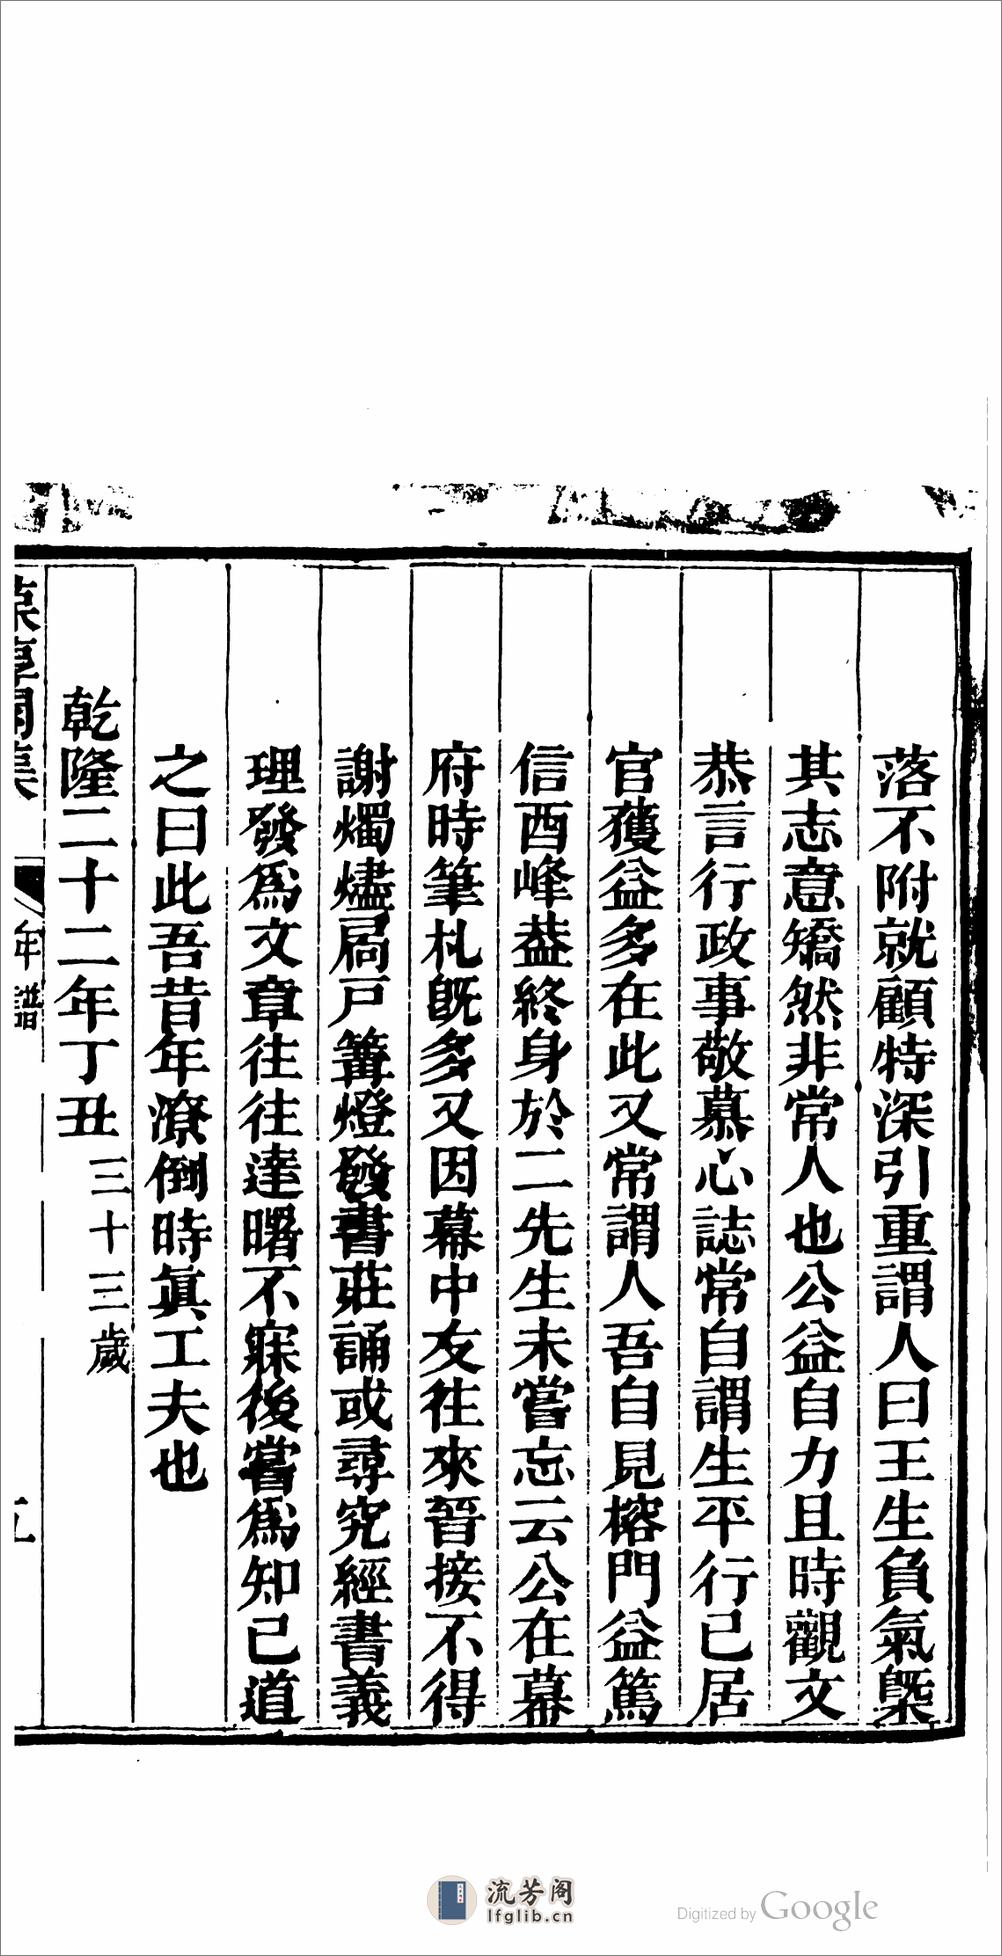 落不附就顧特深引重謂人曰王生負氣槩
其志意矯然非常人也公益自力且時觀文
恭言行政事敬慕心誌常自謂生平行已居
官獲益多在此又常謂人吾自見榕門益篤
信酉峰葢終身於二先生未嘗忘云公在幕
府時筆札旣多又因幕中友往來晉接不得
謝燭燼扃戸篝燈發書莊誦或尋究經書義
理發爲文章往往達曙不寐後嘗爲知己道
之曰此吾昔年潦倒時眞工夫也
乾隆二十二年丁丑三十三歲
年譜
流芳阁
lfglib.cn
Digitized by Google